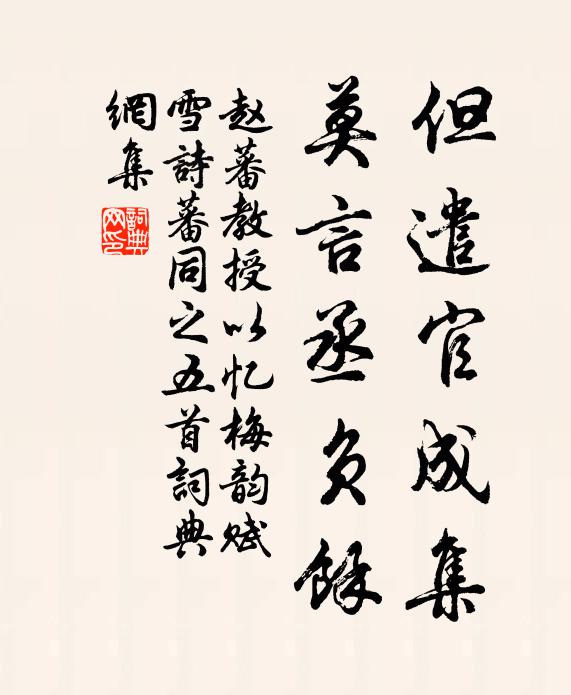 但遣官成集
莫言丞負餘
赵蕃教授以忆梅韵赋
雪詩蕃同之五首詞典
網集
詞典
网印